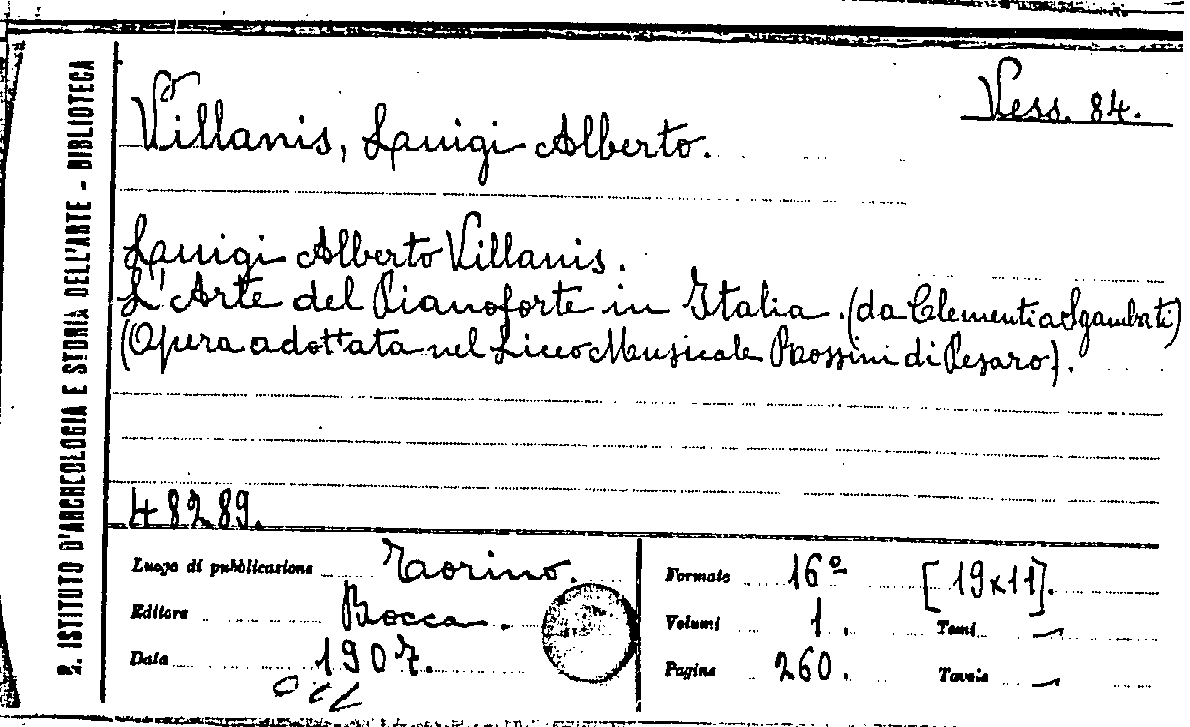 R. ISTITUTO D'ARCHEOLOGIA E STORIA DELL'ARTE - BIBLIOTECA
Vess. 84.
Villanis, Luigi Alberto.
Luigi Alberto Villanis.
L'Arte del Pianoforte in Italia. (da Clementi a Sgambati)
(Opera adottata nel Liceo Musicale Rossini di Pesaro).
48289.
Luogo di pubblicazione Torino.
Editore Bocca.
Data 1907.
Formato 16º [19x11].
Volumi 1. Tomi —
Pagine 260. Tavole —